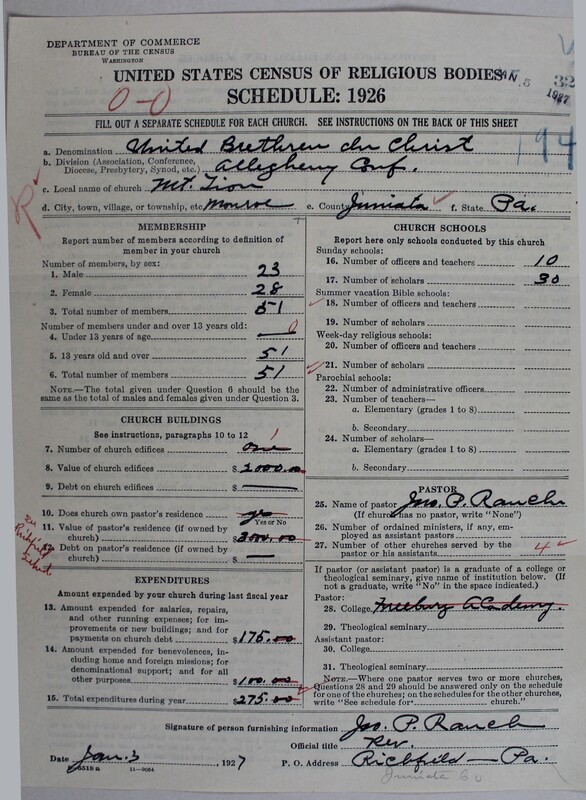 DEPARTMENT OF COMMERCE
BUREAU OF THE CENSUS
WASHINGTON
UNITED STATES CENSUS OF RELIGIOUS BODIES
SCHEDULE: 1926
JAN. 5 1927
32
0-0
194
FILL OUT A SEPARATE SCHEDULE FOR EACH CHURCH. SEE INSTRUCTIONS ON THE BACK OF THIS SHEET
a. Denomination United Brethren In Christ
b. Division (Association, Conference, Diocese, Presbytery, Synod, etc.) Allegheny Conf.
c. Local name of church Mt. Zion
d. City, town, village, or township, etc. Monroe e. County Juniata f. State Pa.
R
MEMBERSHIP
Report number of members according to definition of
member in your church
Number of members, by sex:
1. Male 23
2. Female 28
3. Total number of members 51
Number of members under and over 13 years old:
4. Under 13 years of age 0
5. 13 years old and over 51
6. Total number of members 51
NOTE.—The total given under Question 6 should be the
same as the total of males and females given under Question 3.
CHURCH BUILDINGS
See instructions, paragraphs 10 to 12
7. Number of church edifices one 1
8. Value of church edifices $2000.00
9. Debt on church edifices $
10. Does church own pastor's residence yes
Yes or No
11. Value of pastor's residence (if owned by
church) $3500.00
12. Debt on pastor's residence (if owned by
church) $
See Richfield Sched
EXPENDITURES
Amount expended by your church during last fiscal year
13. Amount expended for salaries, repairs,
and other running expenses; for im-
provements or new buildings; and for
payments on church debt $175.00
14. Amount expended for benevolences, in-
cluding home and foreign missions; for
denominational support; and for all
other purposes $100.00
15. Total expenditures during year $275.00
CHURCH SCHOOLS
Report here only schools conducted by this church
Sunday schools:
16. Number of officers and teachers 10
17. Number of scholars 30
Summer vacation Bible schools:
18. Number of officers and teachers
19. Number of scholars
Week-day religious schools:
20. Number of officers and teachers
21. Number of scholars
Parochial schools:
22. Number of administrative officers
23. Number of teachers—
a. Elementary (grades 1 to 8)
b. Secondary
24. Number of scholars—
a. Elementary (grades 1 to 8)
b. Secondary
PASTOR
25. Name of pastor Jno. P. Ranch
(If church has no pastor, write "None")
26. Number of ordained ministers, if any, em-
ployed as assistant pastors
27. Number of other churches served by the
pastor or his assistants 4
If pastor (or assistant pastor) is a graduate of a college or
theological seminary, give name of institution below. (If
not a graduate, write "No" in the space indicated.)
Pastor:
28. College Freeburg Academy.
29. Theological seminary
Assistant pastor:
30. College
31. Theological seminary
NOTE.—Where one pastor serves two or more churches,
Questions 28 and 29 should be answered only on the schedule
for one of the churches; on the schedules for the other churches,
write "See schedule for church."
Signature of person furnishing information Jno. P. Ranch
Official title Rev.
Date Jan. 3, 1927 P. O. Address Richfield — Pa.
Juniata Co
8—6518a 11—9064